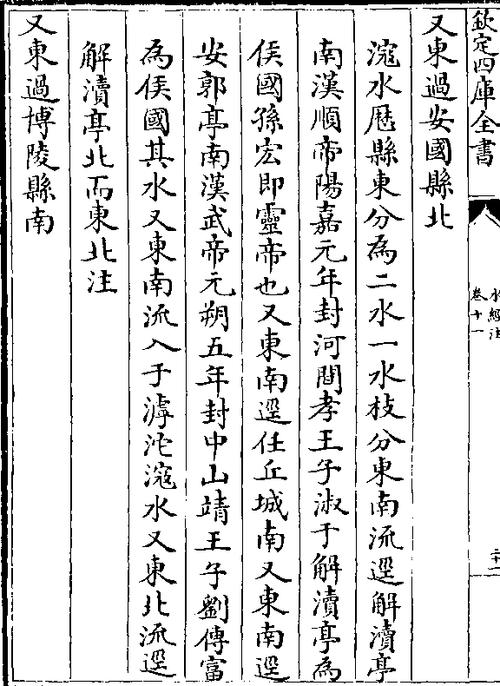 欽定四庫全書
水經注
卷十一
二十二
又東過安國縣北
滱水歴縣東分為二水一水枝分東南流逕解瀆亭
南漢順帝陽嘉元年封河間孝王子淑于解瀆亭為
侯國孫宏即靈帝也又東南逕任丘城南又東南逕
安郭亭南漢武帝元朔五年封中山靖王子劉傳富
為侯國其水又東南流入于滹沱滱水又東北流逕
解瀆亭北而東北注
又東過博陵縣南